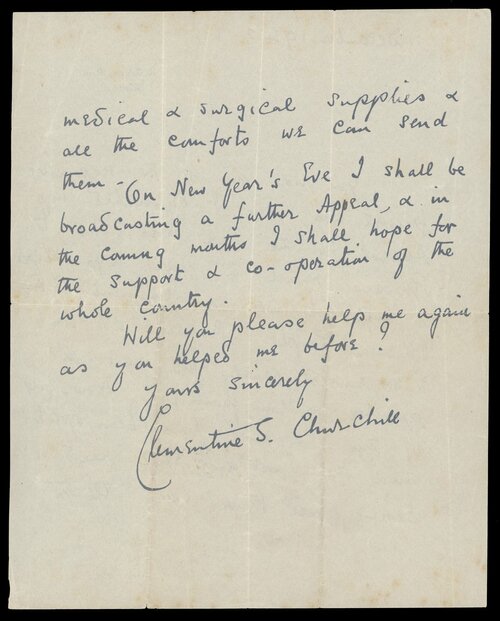 medical & surgical supplies &
all the comforts we can send
them - On New Year's Eve I shall be
broadcasting a further Appeal, & in
the coming months I shall hope for
the support & co-operation of the
whole country.
Will you please help me again
as you helped me before?
yours sincerely
Clementine S. Churchill